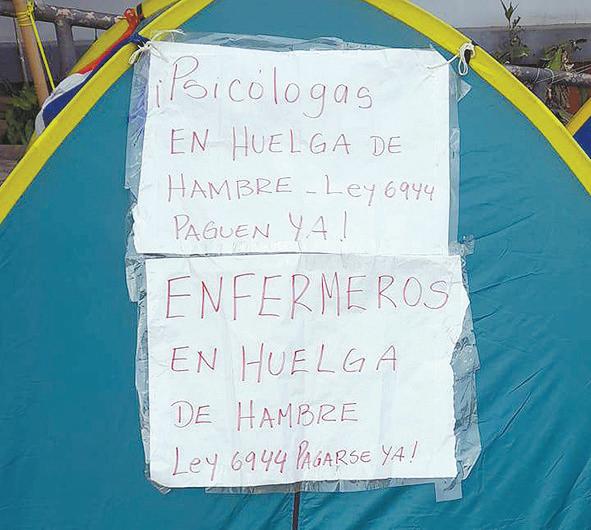 ¡Psicólogas
EN HUELGA DE
HAMBRE - Ley 6944
PAGUEN YA!
ENFERMEROS
EN HUELGA
DE HAMBRE
Ley 6944 PAGARSE YA!